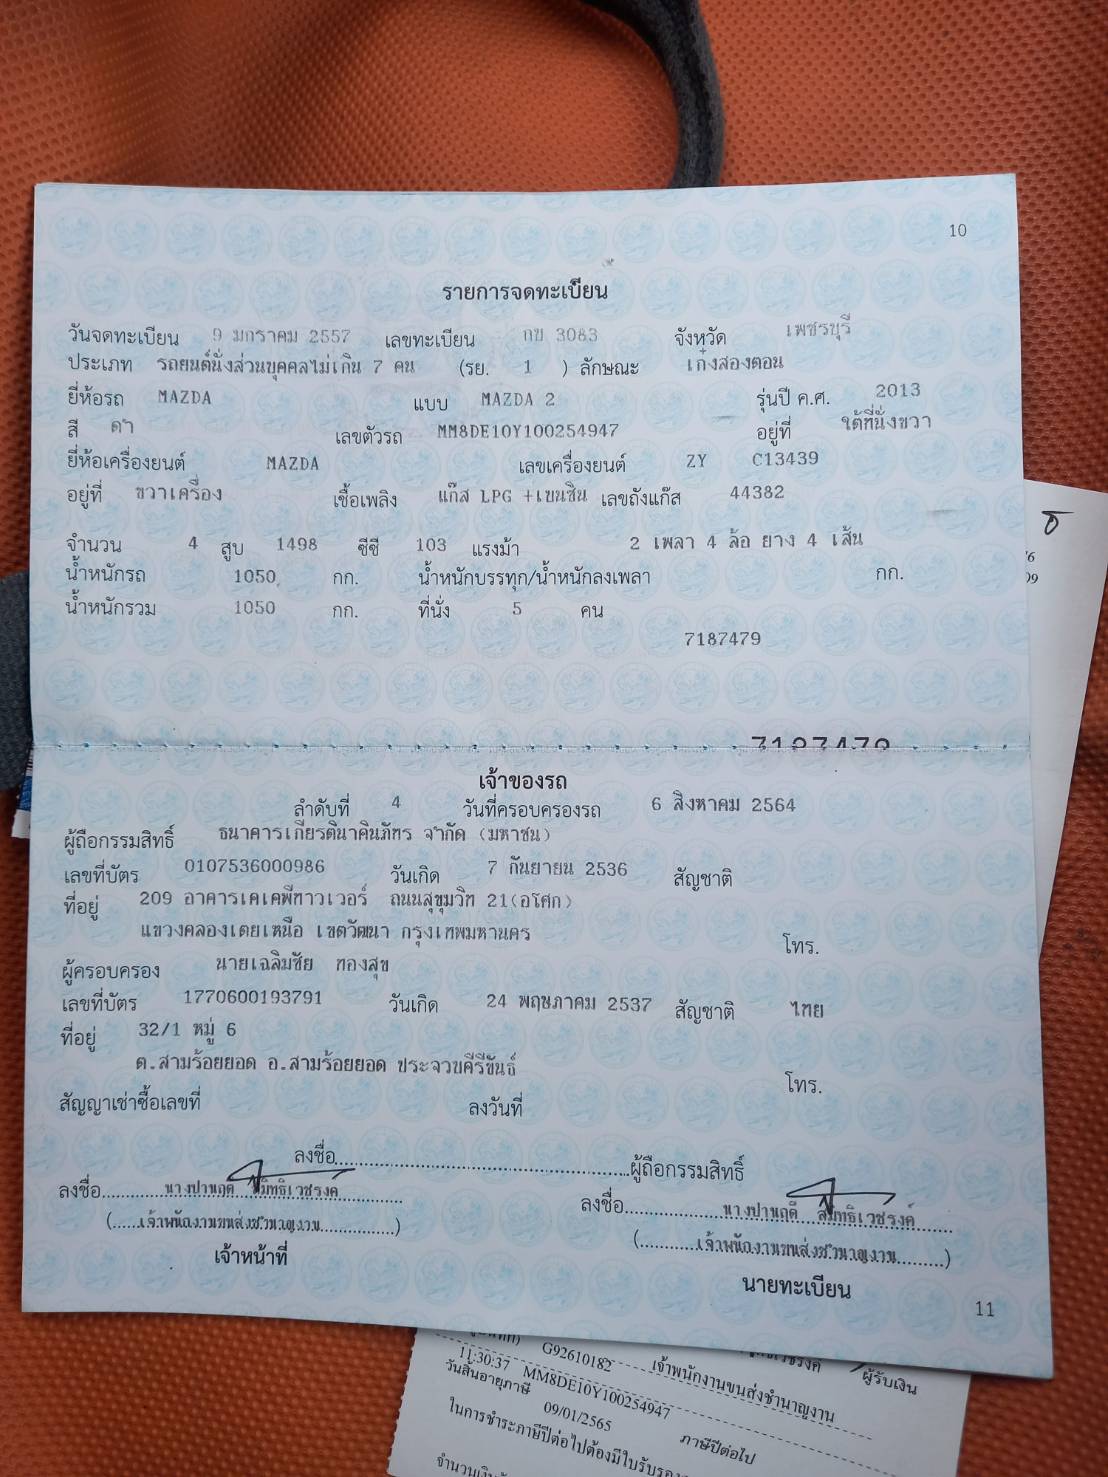 10
รายการจดทะเบียน
วันจดทะเบียน 9 มกราคม 2557 เลขทะเบียน กข 3083 จังหวัด เพชรบุรี
ประเภท รถยนต์นั่งส่วนบุคคลไม่เกิน 7 คน (รย. 1 ) ลักษณะ เก๋งสองตอน
ยี่ห้อรถ MAZDA แบบ MAZDA 2 รุ่นปี ค.ศ. 2013
สี ดำ เลขตัวรถ MM8DE10Y100254947 อยู่ที่ ใต้ที่นั่งขวา
ยี่ห้อเครื่องยนต์ MAZDA เลขเครื่องยนต์ ZY C13439
อยู่ที่ ขวาเครื่อง เชื้อเพลิง แก๊ส LPG +เบนซิน เลขถังแก๊ส 44382
จำนวน 4 สูบ 1498 ซีซี 103 แรงม้า 2 เพลา 4 ล้อ ยาง 4 เส้น
น้ำหนักรถ 1050 กก. น้ำหนักบรรทุก/น้ำหนักลงเพลา กก.
น้ำหนักรวม 1050 กก. ที่นั่ง 5 คน
7187479
7187479
เจ้าของรถ
ลำดับที่ 4 วันที่ครอบครองรถ 6 สิงหาคม 2564
ผู้ถือกรรมสิทธิ์ ธนาคารเกียรตินาคินภัทร จำกัด (มหาชน)
เลขที่บัตร 0107536000986 วันเกิด 7 กันยายน 2536 สัญชาติ
ที่อยู่ 209 อาคารเคเคพีทาวเวอร์ ถนนสุขุมวิท 21(อโศก)
แขวงคลองเตยเหนือ เขตวัฒนา กรุงเทพมหานคร โทร.
ผู้ครอบครอง นายเฉลิมชัย ทองสุข
เลขที่บัตร 1770600193791 วันเกิด 24 พฤษภาคม 2537 สัญชาติ ไทย
ที่อยู่ 32/1 หมู่ 6
ต.สามร้อยยอด อ.สามร้อยยอด ประจวบคีรีขันธ์ โทร.
สัญญาเช่าซื้อเลขที่ ลงวันที่
ลงชื่อ ผู้ถือกรรมสิทธิ์
ลงชื่อ นางปานฤดี สมิทธิเวชรงค์ ลงชื่อ นางปานฤดี สมิทธิเวชรงค์
(เจ้าพนักงานขนส่งชำนาญงาน) (เจ้าพนักงานขนส่งชำนาญงาน)
เจ้าหน้าที่ นายทะเบียน
11
G92610182 เจ้าพนักงานขนส่งชำนาญงาน ผู้รับเงิน
11:30:37 MM8DE10Y100254947
วันสิ้นอายุภาษี 09/01/2565 ภาษีปีต่อไป
ในการชำระภาษีปีต่อไปต้องมีใบรับรอง